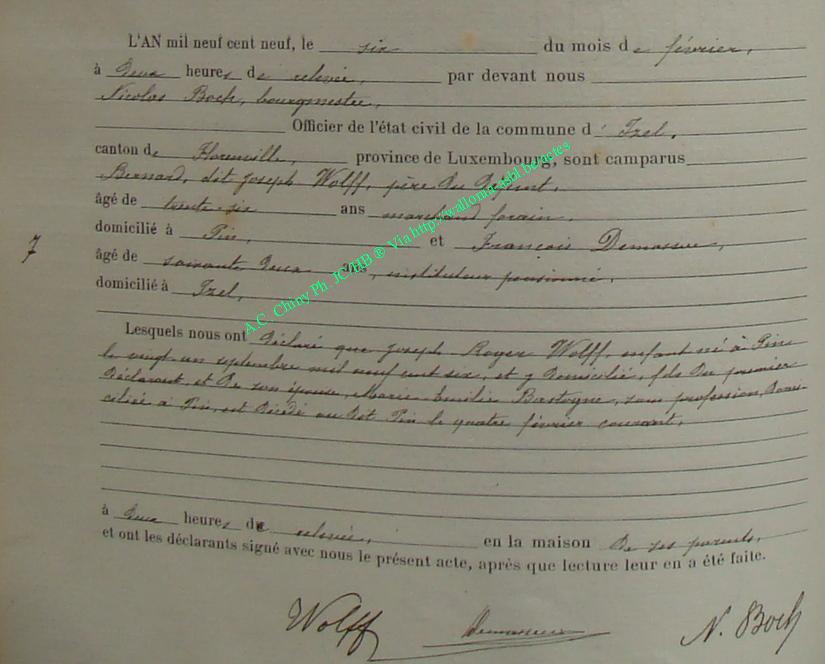 L'AN mil neuf cent neuf, le six du mois de février,
à deux heures de relevée, par devant nous
Nicolas Boch, bourgmestre,
Officier de l'état civil de la commune d'Izel,
canton de Florenville, province de Luxembourg, sont camparus
Bernard, dit Joseph Wolff, père du défunt,
âgé de trente-six ans marchand forain,
domicilié à Pin, et François Demasure,
âgé de soixante deux ans, instituteur pensionné,
domicilié à Izel,
7
Lesquels nous ont déclaré que Joseph Roger Wolff, enfant né à Pin
le vingt un septembre mil neuf cent six, et y domicilié, fils du premier
déclarant, et de son épouse, Marie Emilie Bastogne, sans profession, domi-
ciliée à Pin, est décédé au dit Pin le quatre février courant,
à deux heures de relevée, en la maison de ses parents,
et ont les déclarants signé avec nous le présent acte, après que lecture leur en a été faite.
Wolff Demasure N. Boch
A.C. Chiny Ph. JCHB ® Via http://wallonia-asbl.be/actes